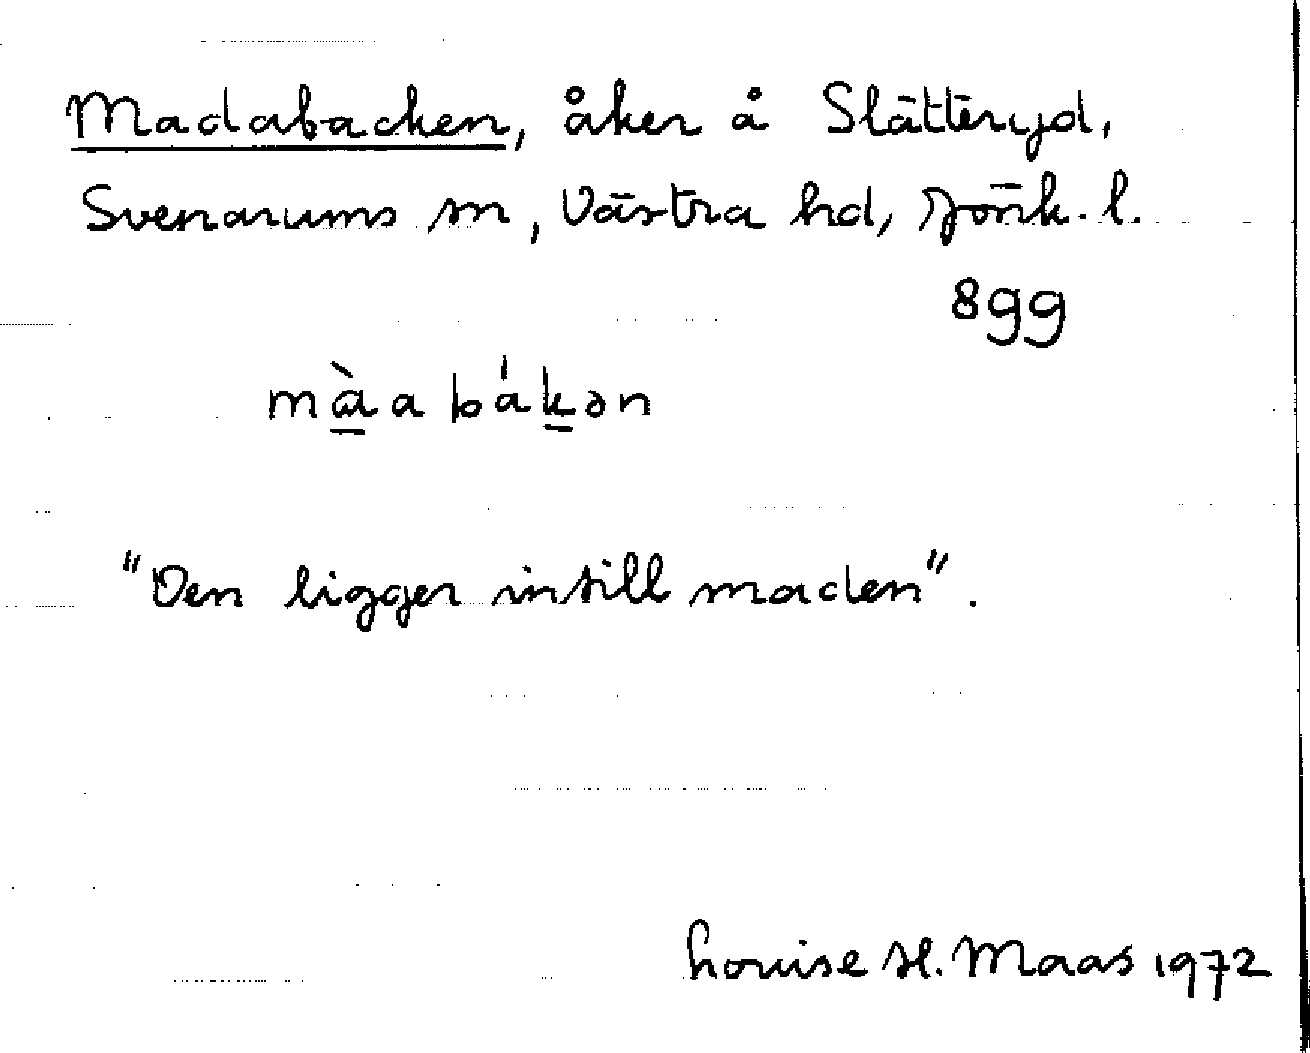 Madabacken, åker å Slätteryd,
Svenarums sn, Västra hd, Jönk. l.
899
màa bákən
"Den ligger intill maden".
Louise H. Maas 1972